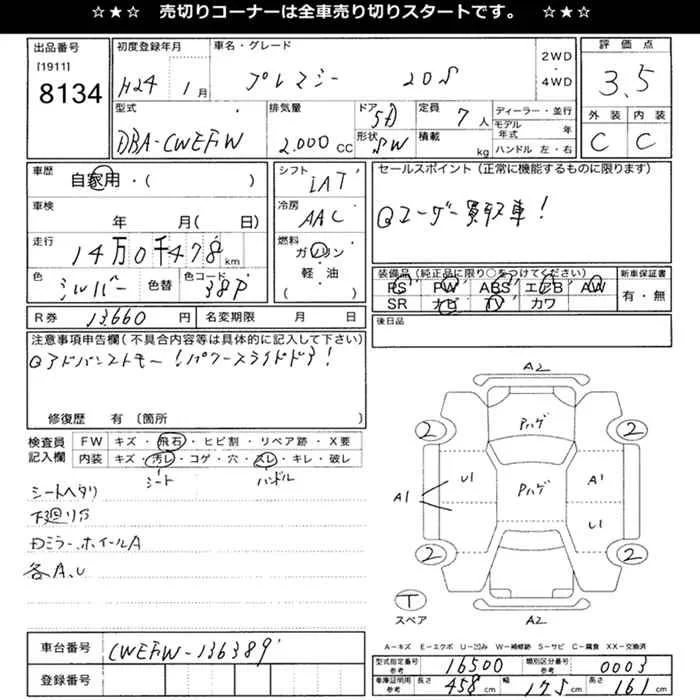 ☆★☆ 売切りコーナーは全車売り切りスタートです。 ☆★☆
出品番号 初度登録年月 車名・グレード 2WD・4WD 評価点
[1911]
8134 H24 1月 プレマシー 20S 3.5
型式 排気量 ドア 5D 定員 7人 ディーラー・並行 外装 内装
DBA-CWEFW 2.000CC 形状 SW 積載 kg モデル年式 年 C C
ハンドル 左・右
車歴 自家用・( ) シフト IAT セールスポイント (正常に機能するものに限ります)
車検 年 月( 日) 冷房 AAC 買取車!
走行 14万0千478km 燃料 ガソリン・軽油
色 シルバー 色替 色コード 38P
装備品 (純正品に限り○をつけてください) 新車保証書
PS PW ABS エアB AW 有・無
SR ナビ TV カワ
R券 13,660円 名変期限 月 日 後日品
注意事項申告欄(不具合内容等は具体的に記入して下さい)
アドバンストキー!パワースライドドア!
修復歴 有 〔箇所
検査員記入欄 FW キズ・飛石・ヒビ割・リペア跡・X要
内装 キズ・汚レ・コゲ・穴・スレ・キレ・破レ
シート ハンドル
シートヘタリ
下廻りサ
Dミラー.ホイールA
各A.U
A2
Pハゲ
2 2
U1 Pハゲ A1
A1 U1
2 2
T
スペア A2
A-キズ E-エクボ U-凹み W-補修跡 S-サビ C-腐食 XX-交換済
車台番号 CWEFW-136389
登録番号
型式指定番号 参考 16500 類別区分番号 参考 0003
車庫証明用 参考 長さ 458cm 幅 175cm 高さ 161cm